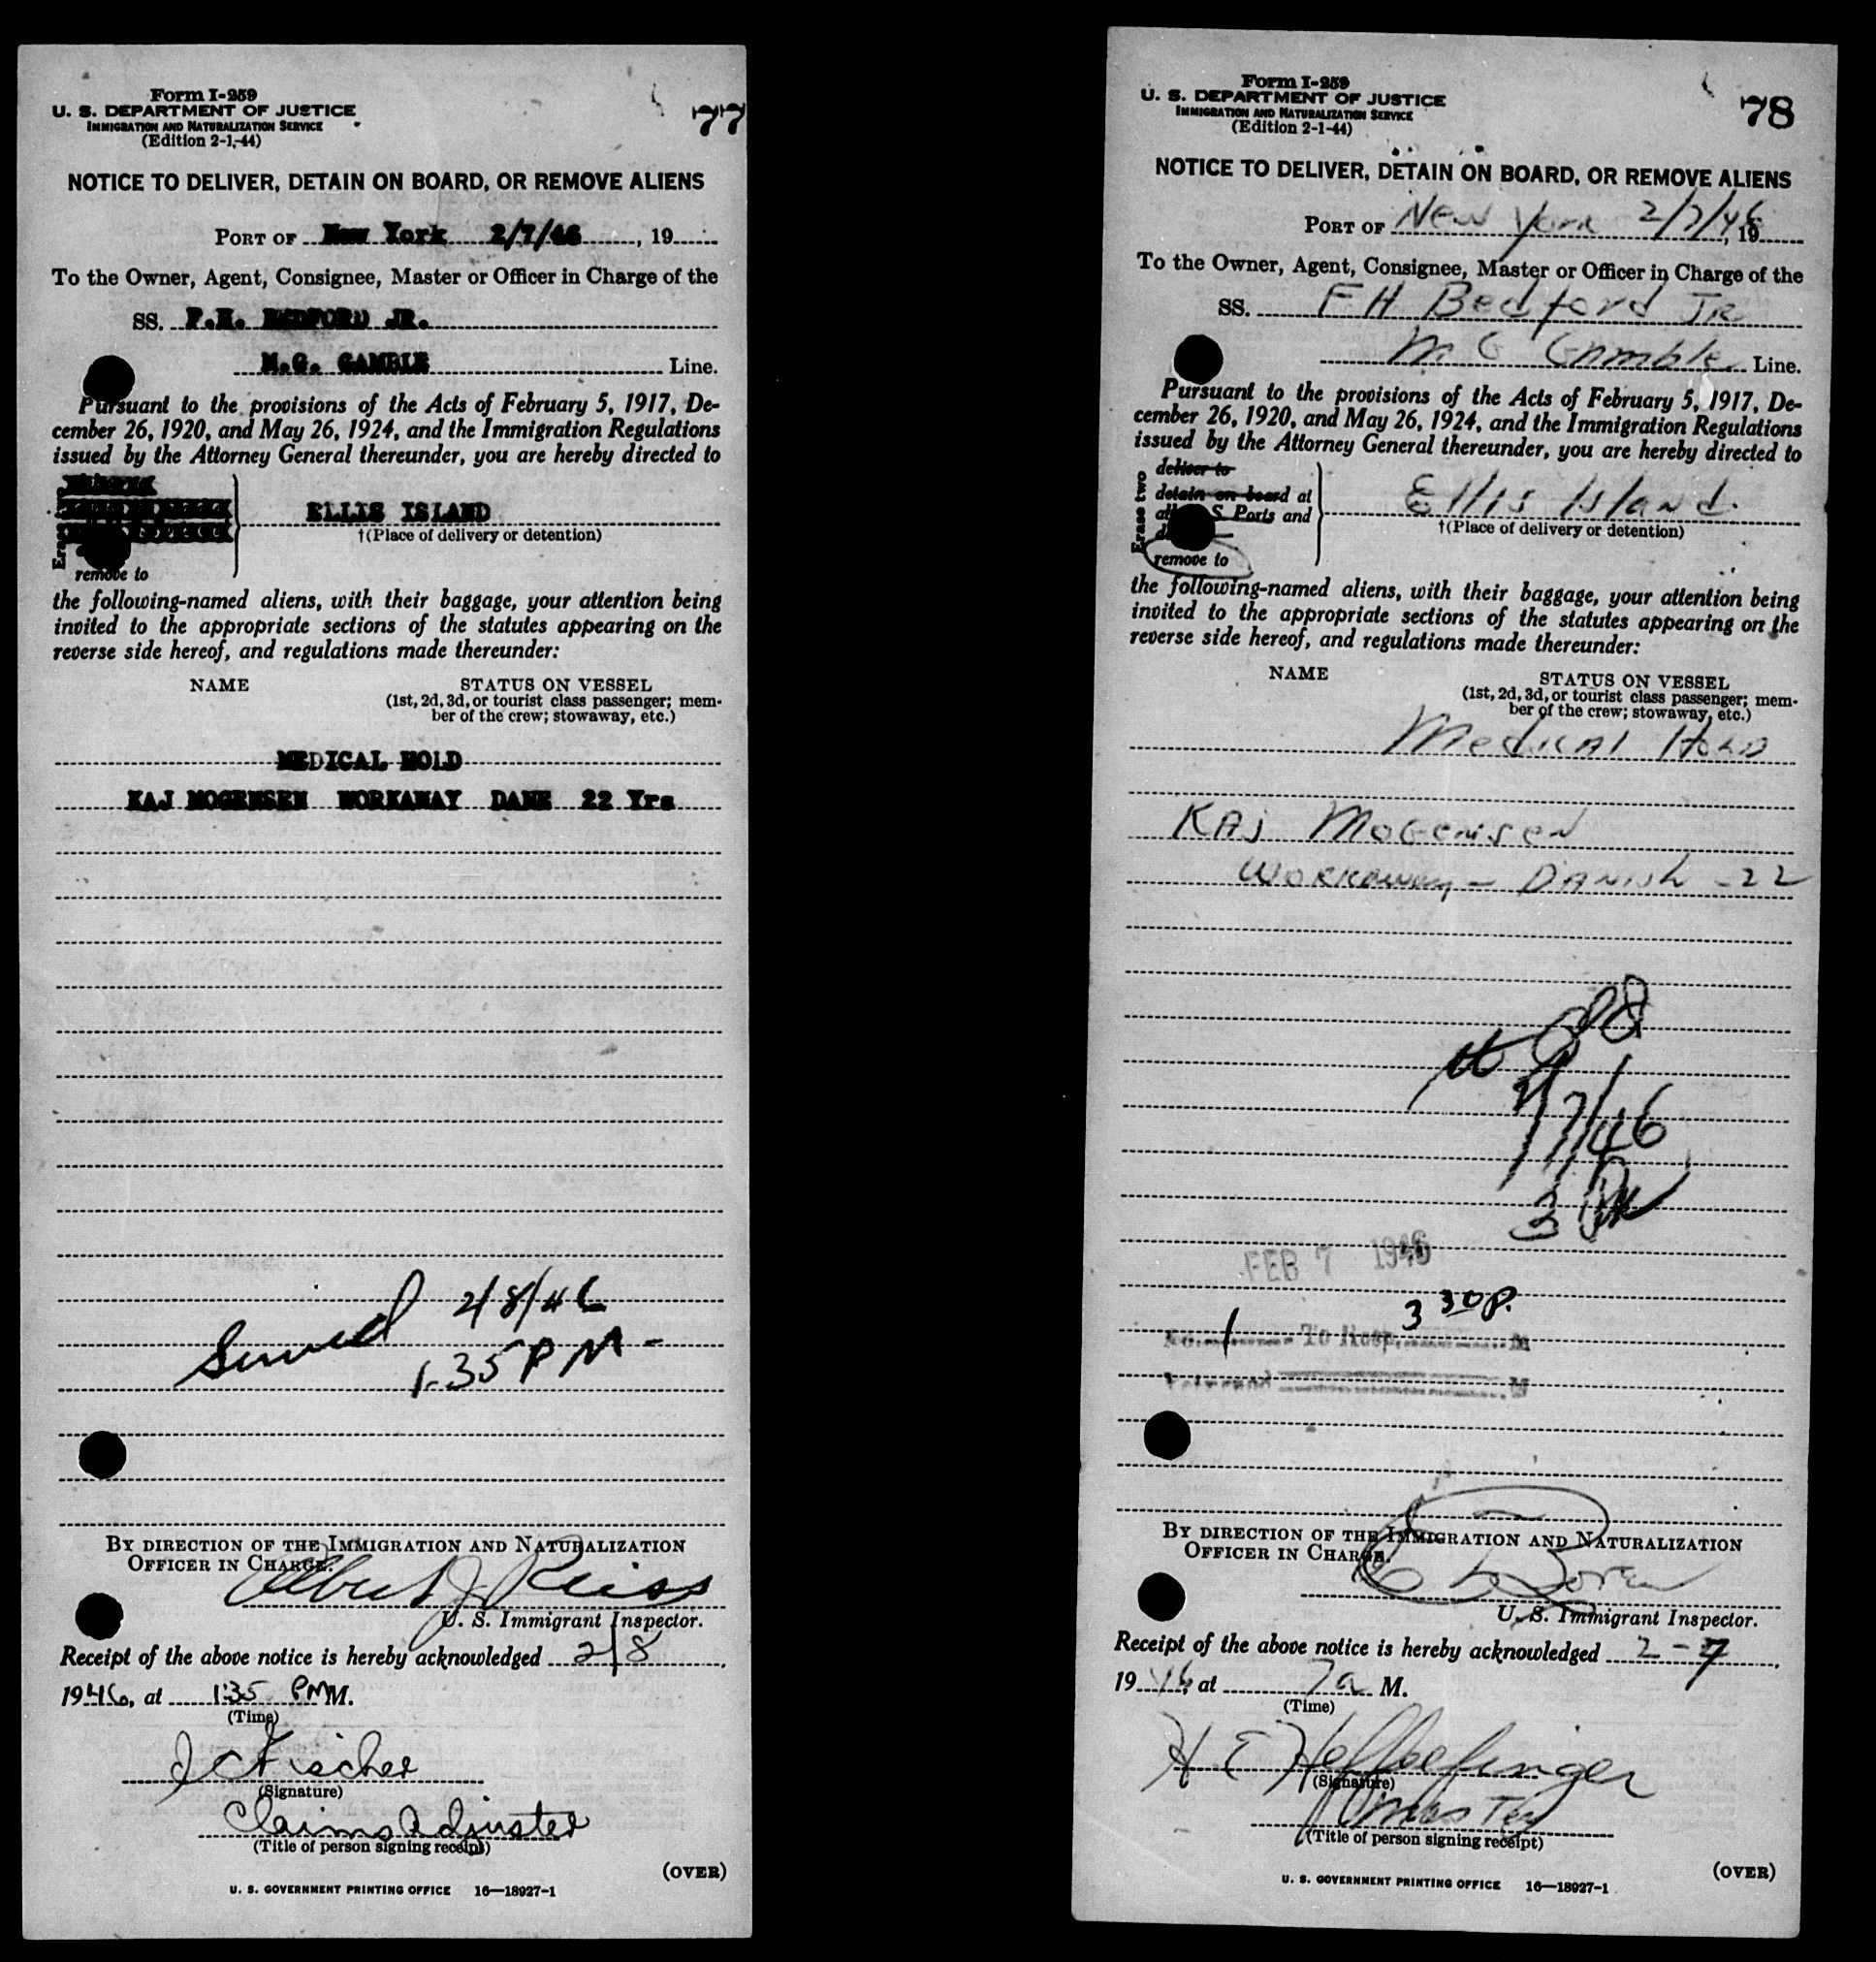 Form I-259
U. S. DEPARTMENT OF JUSTICE
IMMIGRATION AND NATURALIZATION SERVICE
(Edition 2-1-44)
77
NOTICE TO DELIVER, DETAIN ON BOARD, OR REMOVE ALIENS
PORT OF New York 2/7/46, 19
To the Owner, Agent, Consignee, Master or Officer in Charge of the
SS. F.H. BEDFORD JR.
M.G. GAMBLE Line.
Pursuant to the provisions of the Acts of February 5, 1917, De-
cember 26, 1920, and May 26, 1924, and the Immigration Regulations
issued by the Attorney General thereunder, you are hereby directed to
ELLIS ISLAND
†(Place of delivery or detention)
remove to
the following-named aliens, with their baggage, your attention being
invited to the appropriate sections of the statutes appearing on the
reverse side hereof, and regulations made thereunder:
NAME
STATUS ON VESSEL
(1st, 2d, 3d, or tourist class passenger; mem-
ber of the crew; stowaway, etc.)
MEDICAL HOLD
KAJ MOGENSEN WORKAWAY DANE 22 Yrs
Served 2/8/46
1:35 PM-
BY DIRECTION OF THE IMMIGRATION AND NATURALIZATION
OFFICER IN CHARGE.
Albert J Reiss
U. S. Immigrant Inspector.
Receipt of the above notice is hereby acknowledged 2/8,
1946, at 1:35 PM M.
(Time)
J C Fischer
(Signature)
Claims Adjuster
(Title of person signing receipt)
(OVER)
U. S. GOVERNMENT PRINTING OFFICE 16—18927-1
Form I-259
U. S. DEPARTMENT OF JUSTICE
IMMIGRATION AND NATURALIZATION SERVICE
(Edition 2-1-44)
78
NOTICE TO DELIVER, DETAIN ON BOARD, OR REMOVE ALIENS
PORT OF New York 2/7/46, 19
To the Owner, Agent, Consignee, Master or Officer in Charge of the
SS. F H Bedford JR
M G Gamble Line.
Pursuant to the provisions of the Acts of February 5, 1917, De-
cember 26, 1920, and May 26, 1924, and the Immigration Regulations
issued by the Attorney General thereunder, you are hereby directed to
Erase two
deliver to
detain on board at
S Ports and
remove to
Ellis Island.
†(Place of delivery or detention)
the following-named aliens, with their baggage, your attention being
invited to the appropriate sections of the statutes appearing on the
reverse side hereof, and regulations made thereunder:
NAME
STATUS ON VESSEL
(1st, 2d, 3d, or tourist class passenger; mem-
ber of the crew; stowaway, etc.)
Medical Hold
KAJ Mogensen
Workaway - Danish - 22
2/7/46
FEB 7 1946
3 30 P.
1 To Hosp. M
M
BY DIRECTION OF THE IMMIGRATION AND NATURALIZATION
OFFICER IN CHARGE.
U. S. Immigrant Inspector.
Receipt of the above notice is hereby acknowledged 2-7,
1946, at 7a M.
(Time)
(Signature)
Master
(Title of person signing receipt)
(OVER)
U. S. GOVERNMENT PRINTING OFFICE 16—18927-1